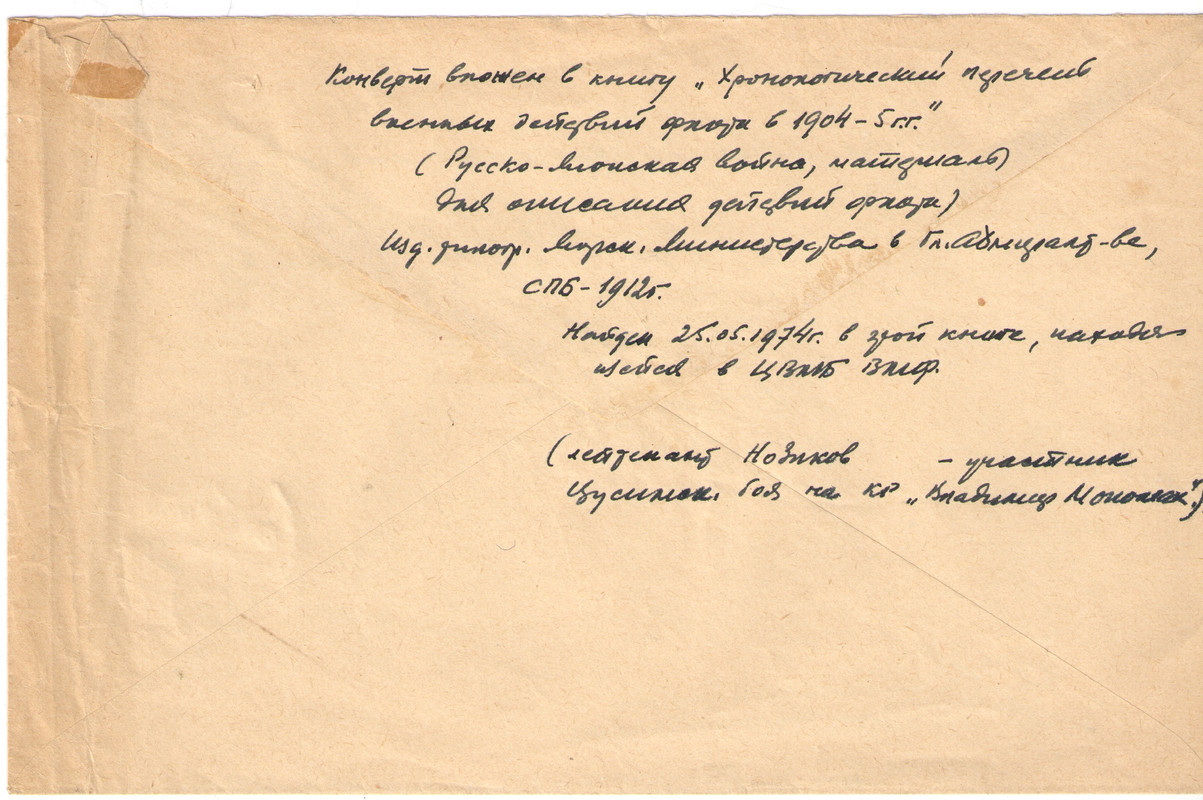 Конверт вложен в книгу „Хронологический перечень
военных действий флота в 1904-5 г.г."
(Русско-Японская война, материалы
для описания действий флота)
Изд. типогр. Морск. Министерства в Гл. Адмиралт-ве,
СПБ - 1912г.
Найден 25.05.1974г. в этой книге, находя-
щейся в ЦВМБ ВМФ.
(лейтенант Новиков - участник
Цусимск. боя на кр „Владимир Мономах".)